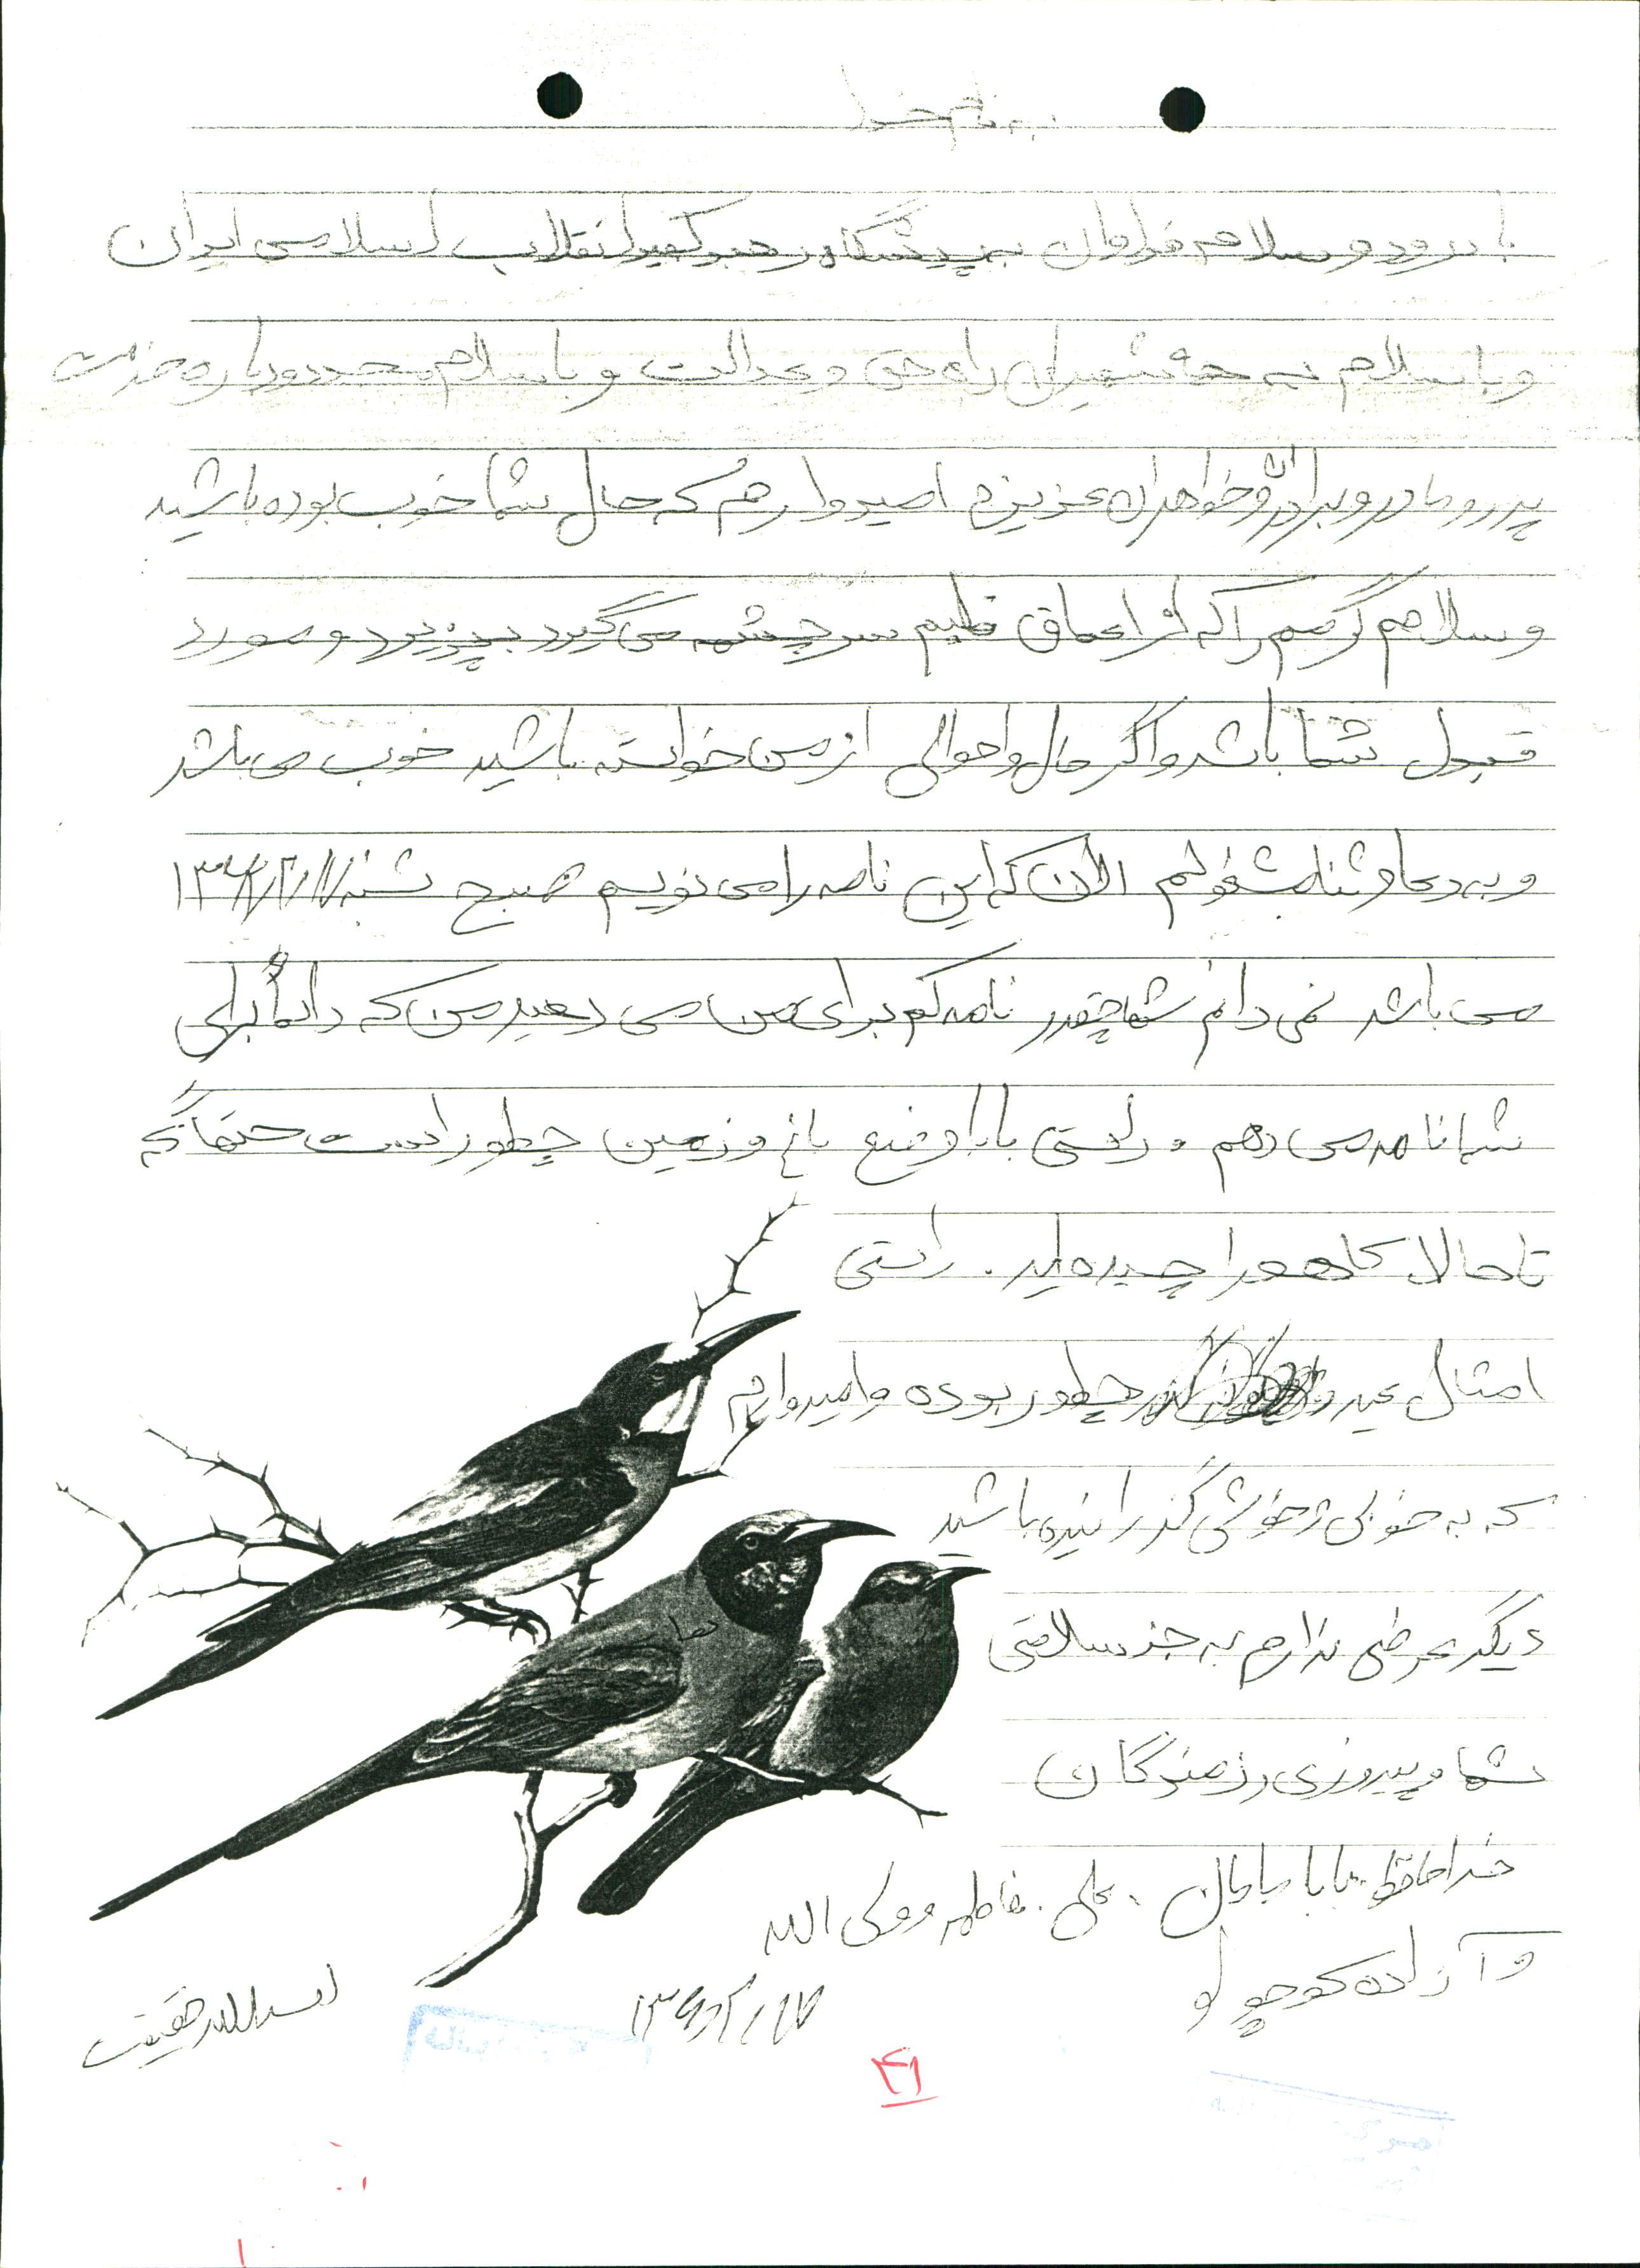 به نام خدا
با درود و سلام فراوان به پیشگاه رهبر کبیر انقلاب اسلامی ایران
و با سلام به شهیدان راه حق و عدالت و با سلام مجدد و دوباره خدمت
پدر و مادر و برادران و خواهران عزیزم امیدوارم که حال شما خوب بوده باشید
و سلام گرمم را که از اعماق قلبم سرچشمه می گیرد بپزیرید و مورد
قبول شما باشد و اگر حال و احوالی از من خواسته باشید خوب می باشد
و به دعا و ثنا مشغولم الان که این نامه را می نویسم صبح شنبه
می باشد نمی دانم شما چقدر نامه کم برای من می دهید من که دائماً برای
شما نامه می دهم . راستی بابا وضع باغ و زمین چطور است حتما که
تا حالا کاهو را چیده اید . راستی
امثال عید چطور بوده و امیدوارم
که به خوبی و خوشی گذرانیده باشید
دیگر عرضی ندارم به جز سلامتی
شما و پیروزی رزمندگان
خداحافظ بابا مامان . علی . فاطمه روی الله
و آزاده کوچولو
اسدالله حقیقت
۴۱